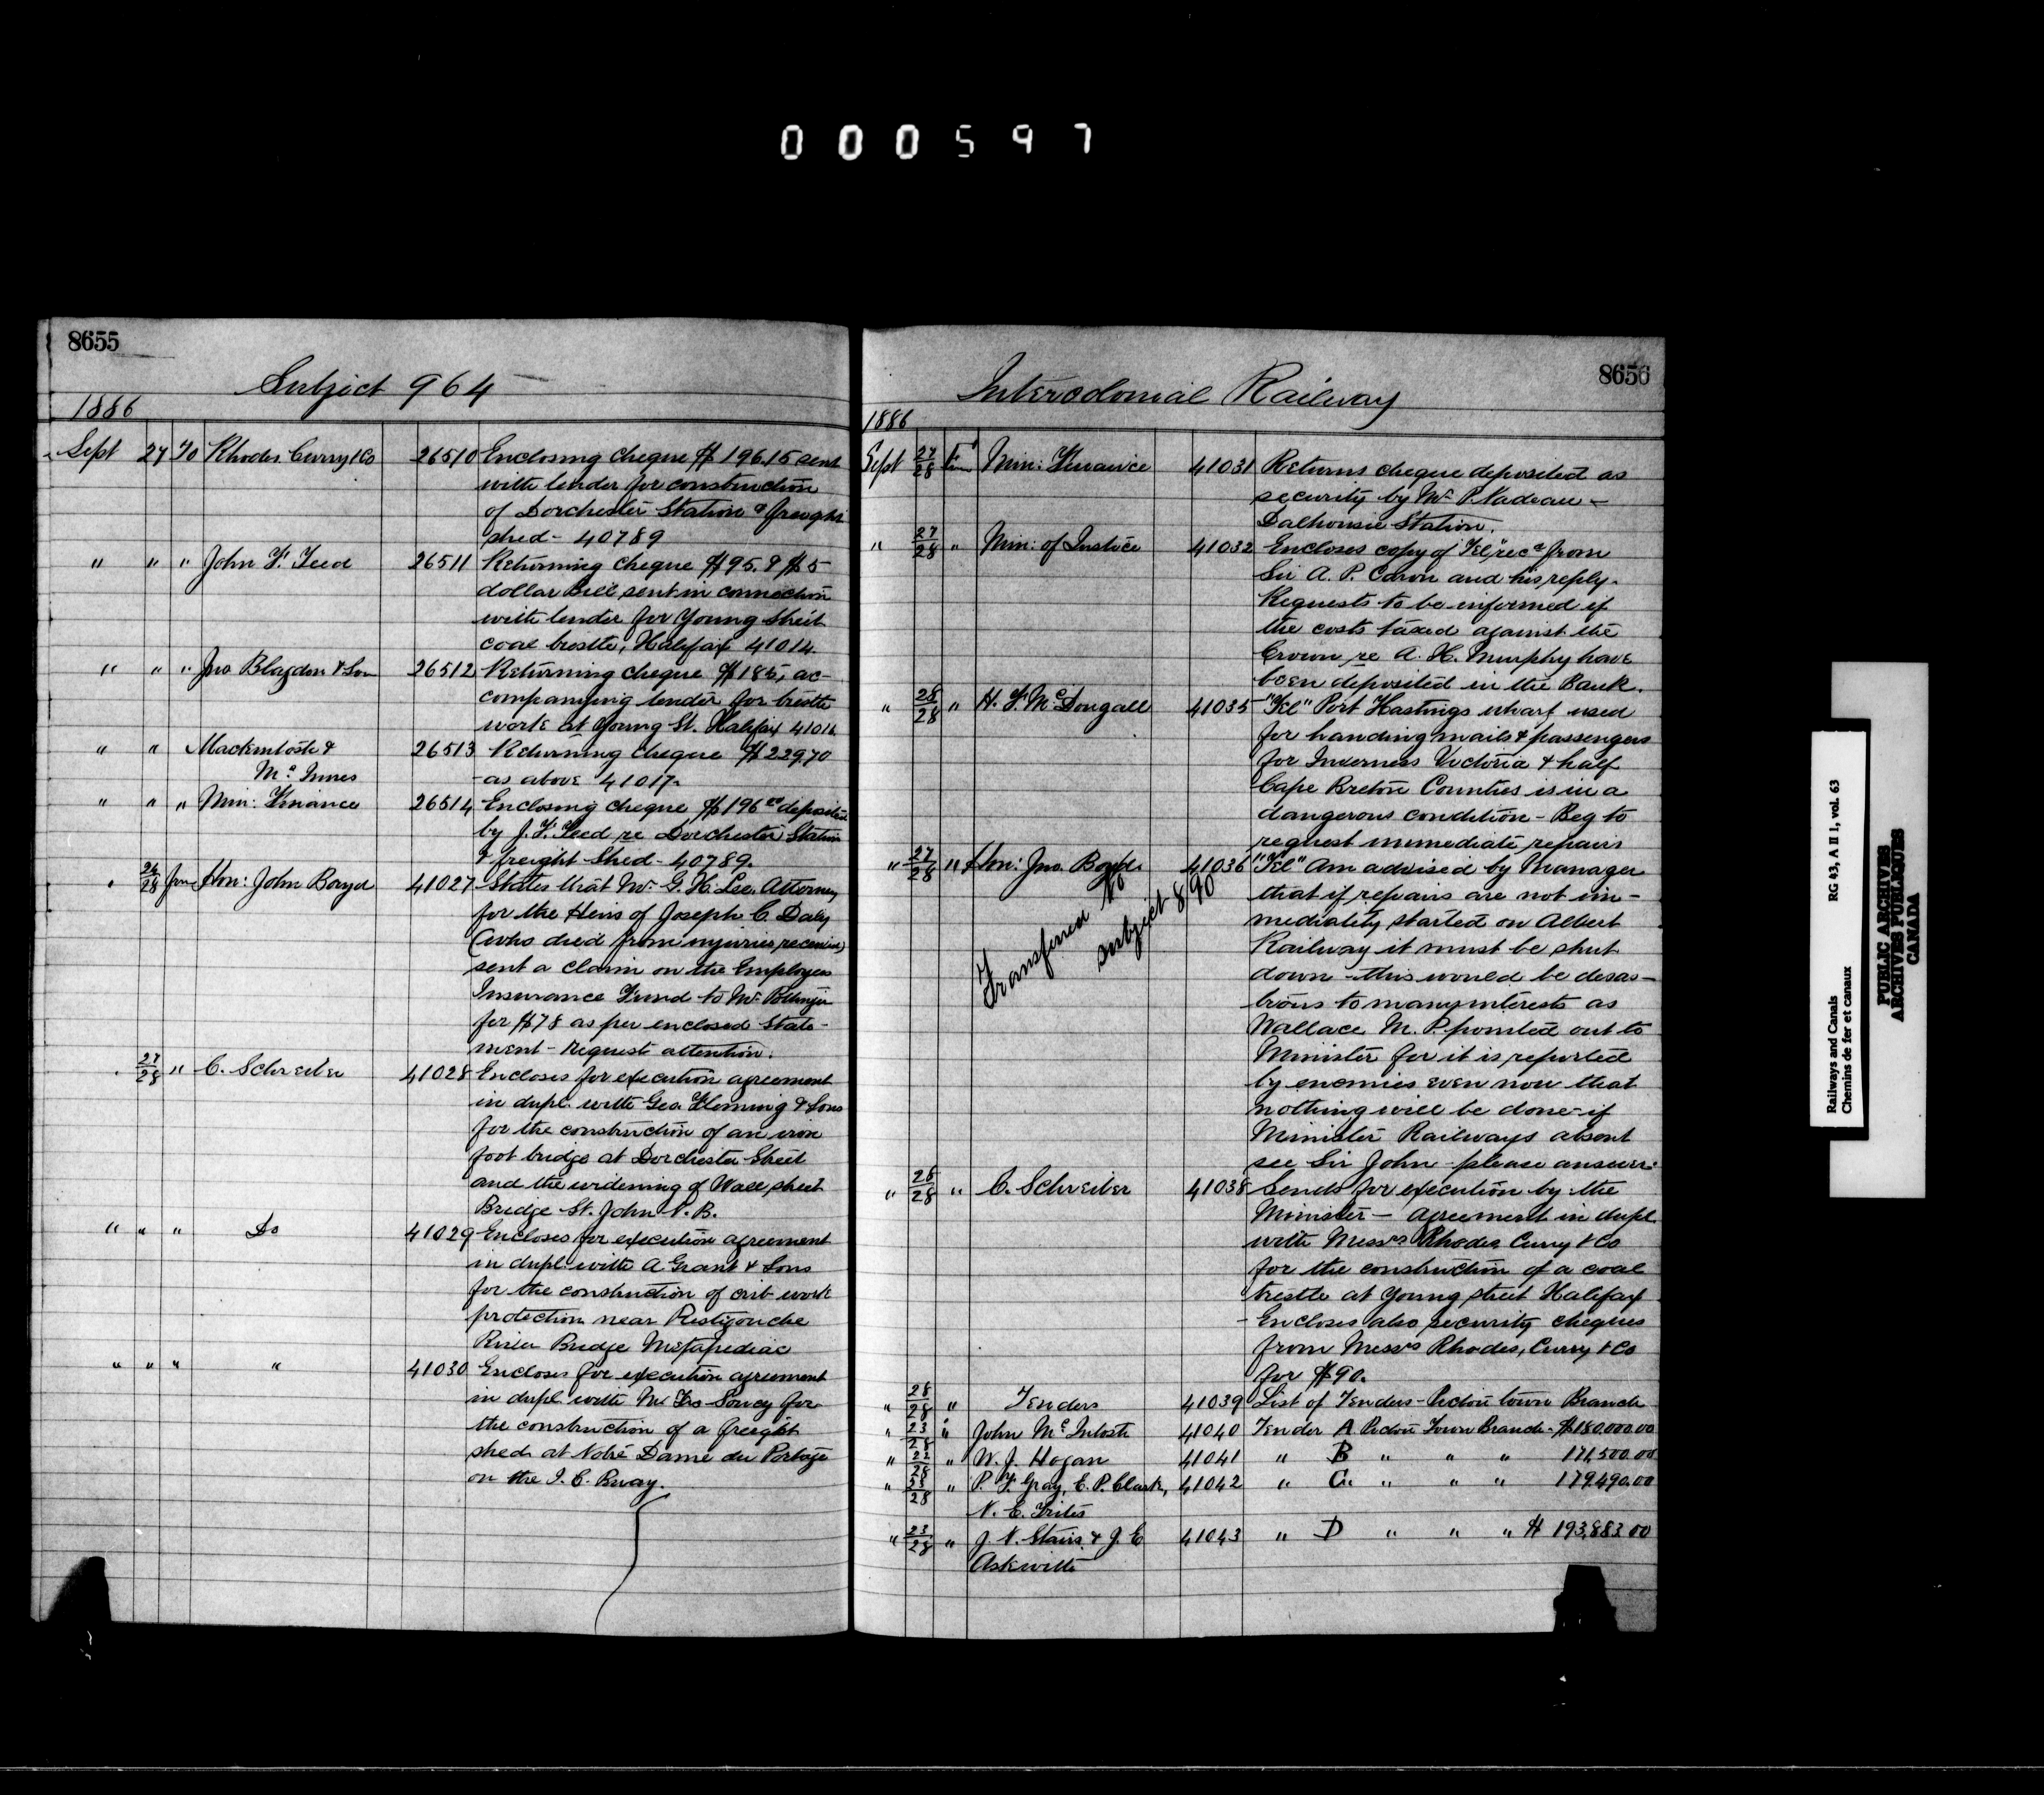 000597
8655
Subject 964
1886
Sept 27 To Rhodes Curry & Co 26510 Enclosing cheque $196.15 sent
with tender for construction
of Dorchester Station & freight
shed - 40789
" " " John F. Teed 26511 Returning cheque $95. & $5
dollar Bill sent in connection
with tender for Young Street
coal trestle, Halifax 41014.
" " " Jno Blagdon & Son 26512 Returning cheque $185, ac-
companying tender for trestle
work at Young St. Halifax 41016
" " Mackintosh & 26513 Returning cheque $229.70
McInnes - as above 41017-
" " " Min: Finance 26514 Enclosing cheque $196 deposited
by J. F. Teed re Dorchester Station
& freight Shed - 40789.
" 26/28 from Hon: John Boyd 41027 States that Mr. G. H. Lee, Attorney
for the Heirs of Joseph C. Daly
(who died from injuries received)
sent a claim on the Employees
Insurance Fund to Mr. Pottinger
for $78 as per enclosed State-
ment - requests attention.
" 27/28 " C. Schreiber 41028 Encloses for execution agreement
in dupl. with Geo. Fleming & Sons
for the construction of an iron
foot bridge at Dorchester Street
and the widening of Wall street
Bridge St. John N. B.
" " " Do 41029 Encloses for execution agreement
in dupl. with A Grant & Sons
for the construction of crib work
protection near Restigouche
River Bridge Metapediac
" " " " 41030 Encloses for execution agreement
in dupl. with Mr Frs Soucy for
the construction of a freight
shed at Notre Dame du Portage
on the I. C. Rway.
8656
Intercolonial Railway
1886
Sept 27/28 from Min: Finance 41031 Returns cheque deposited as
security by Mr. P. Nadeau -
Dalhousie Station.
" 27/28 " Min: of Justice 41032 Encloses copy of "Tel" recd from
Sir A. P. Caron and his reply.
Requests to be informed if
the costs taxed against the
Crown re A. H. Murphy have
been deposited in the Bank.
" 28/28 " H. F. McDougall 41035 "Tel" Port Hastings wharf used
for handing mails & passengers
for Inverness Victoria & half
Cape Breton Counties is in a
dangerous condition - Beg to
request immediate repairs
" 27/28 " Hon: Jno. Boyd. 41036 "Tel" Am advised by Manager
that if repairs are not im-
mediately started on Albert
Railway it must be shut
down - this would be desas-
trous to many interests as
Wallace M. P. pointed out to
Minister for it is reported
by enemies even now that
nothing will be done - if
Minister Railways absent
see Sir John - please answer.
Transferred to
subject 890
" 28/28 " C. Schreiber 41038 Sends for execution by the
Minister - Agreement in dupl.
with Messrs Rhodes Curry & Co
for the construction of a coal
trestle at Young street Halifax
- Encloses also security cheques
from Messrs Rhodes, Curry & Co
for $90.
" 28/28 " Tenders 41039 List of Tenders - Pictou town Branch
" 23/28 " John McIntosh 41040 Tender A Pictou Town Branch - $180,000.00
" 22/28 " W. J. Hogan 41041 " B " " " 171,500.00
" 23/28 " P. F. Gray, E. P. Clark, 41042 " C. " " " 179,490.00
N. E. Frites
" 23/28 " J. N. Stairs & J. E 41043 " D " " " $ 193,883.00
Askwith
Railways and Canals RG 43, A II 1, vol. 63
Chemins de fer et canaux
PUBLIC ARCHIVES
ARCHIVES PUBLIQUES
CANADA